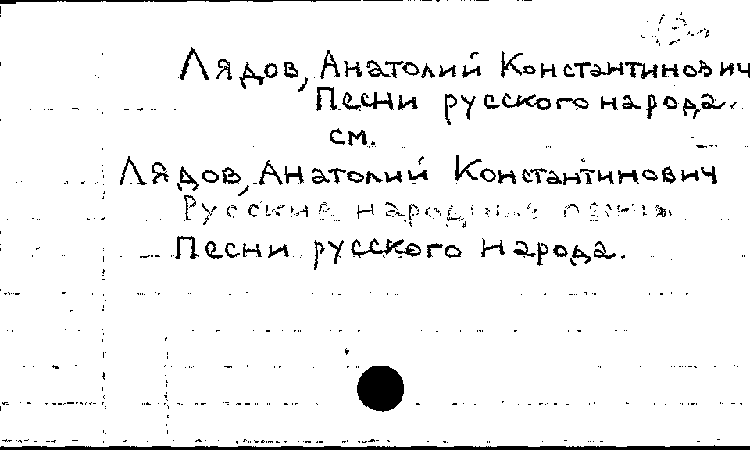 Лядов, Анатолий Константинович
Песни русского народа.
см.
Лядов, Анатолий Константинович
Русские народные песни
Песни русского народа.